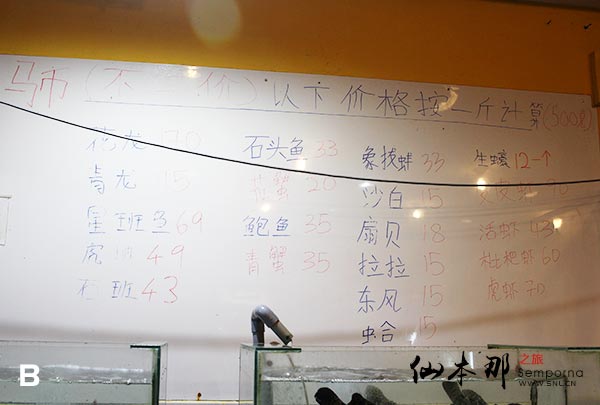 马币(不二价)以下价格按一斤计算(500g)
花龙 70
青龙 15
星班鱼 69
虎班 49
班 43
石头鱼 33
蟹 20
鲍鱼 35
青蟹 35
象拔蚌 33
沙白 15
扇贝 18
拉拉 15
东风 15
虫合 15
生蠔 12一个
皮虾
活虾 43
枇杷虾 60
虎虾 70
B
仙本那之旅
Semporna
WWW.SNL.CN